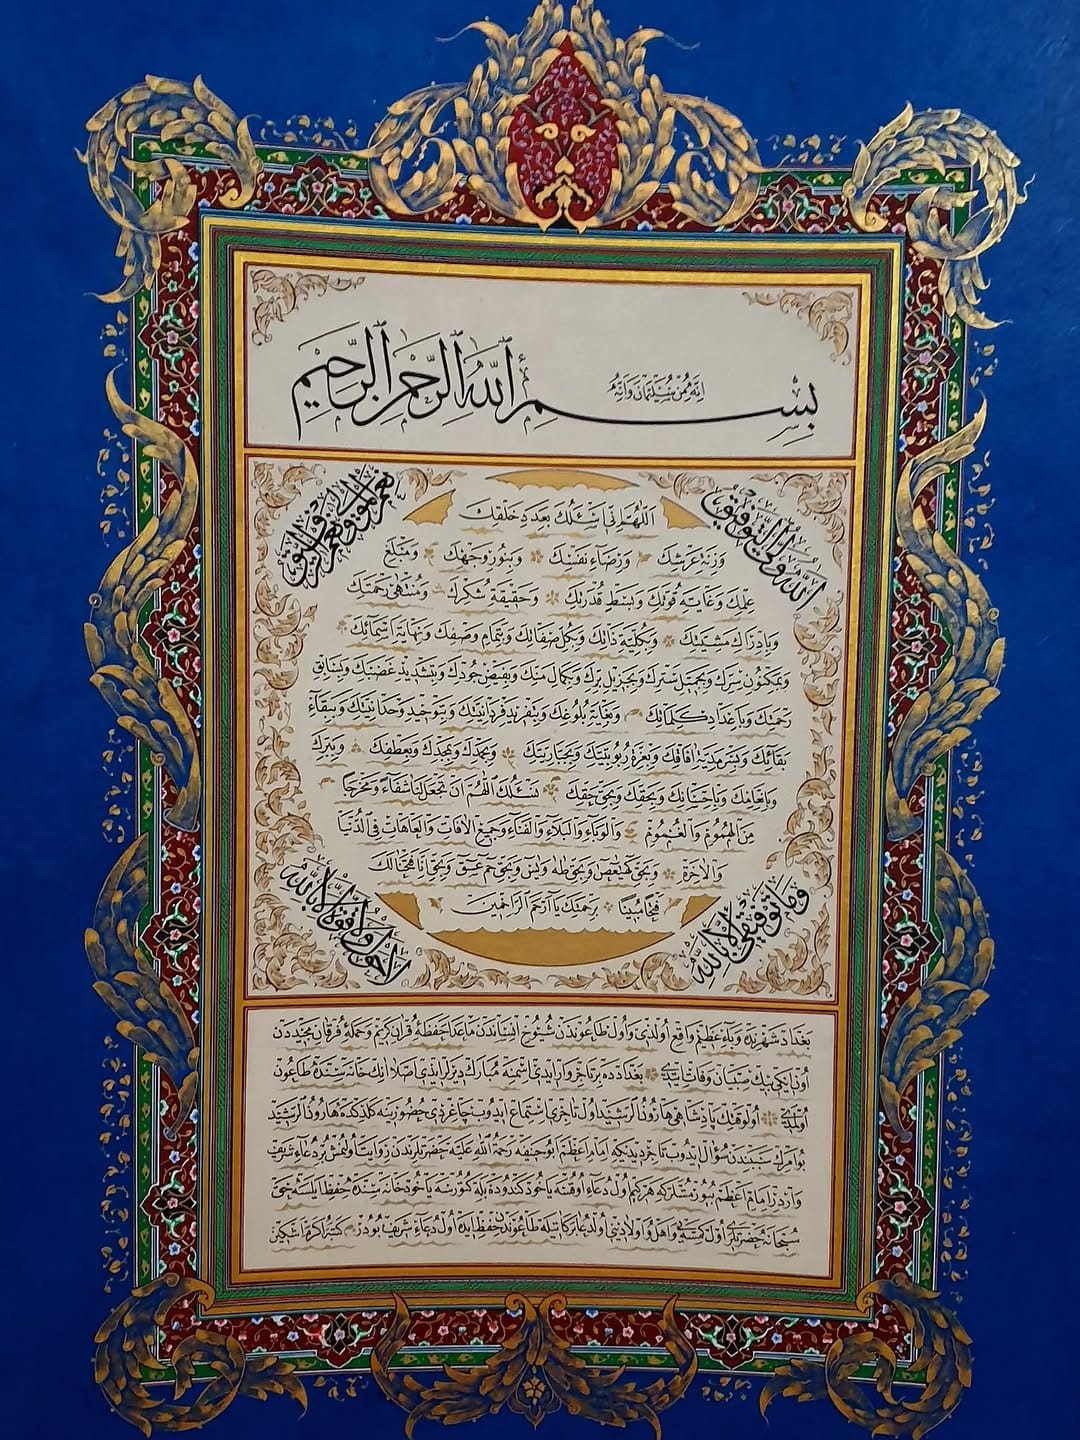 إنه من سليمان وإنه
بسم الله الرحمن الرحيم
الله ولي التوفيق
نعم المولى ونعم الرفيق
اللهم إني أسئلك بعدد خلقك
وزنة عرشك ورضاء نفسك وبنور وجهك ومبلغ
علمك وغاية قوتك وبسط قدرتك وحقيقة شكرك ومنتهى رحمتك
وبإدراك مشيئتك وبكلية ذاتك وبكل صفاتك وبتمام وصفك ونهاية أسمائك
وبمكنون سرك وبجميل سترك وبجزيل برك وبكمال منك وبفيض جودك وبتشديد غضبك وبسابق
رحمتك وبأعداد كلماتك وبغاية بلوغك وبتفريد فردانيتك وبتوحيد وحدانيتك وببقاء
بقائك وبسرمدية وبعزة ربوبيتك وبجباريتك وبحمدك وبمجدك وبعطفك وببرك
وبإنعامك وبإحسانك وبحقك وبحق حقك نسئلك اللهم أن تجعل لنا شفاء ومخرجا
من الهموم والغموم والوباء والبلاء والفناء وجميع الآفات والعاهات في الدنيا
والآخرة وبحق كهيعص وبحق طه ويس وبحق حم عسق وبحق إنا فتحنا لك
فتحا مبينا برحمتك يا أرحم الراحمين
وما توفيقي إلا بالله
لا حول ولا قوة إلا بالله
بغداد شهرنده وباء عظيم واقع اولدى واول طاعوندن شيوخ انساندن ماعدا حفظه قرآن كريم وحمله فرقان مجيددن
اون ايكى بيك صبيان وفات ايتدى بغدادده بر تاجر وار ايدى اسمنه مبارك ديرلر ايدى اصلا انك خانه سنده طاعون
اولمدى اول وقتك پادشاهى هارون الرشيد اول تاجرى استماع ايدوب چاغردى حضورينه كلدكده هارون الرشيد
بو امرك سببندن سؤال ايدوب تاجر ديدى كه امام اعظم ابو حنيفه رحمة الله عليه حضرتلرندن روايت اولنمش بر دعاء شريف
واردر امام اعظم بيورمشلر كه هر كيم اول دعاء اوقسه ياخود كندوده بيله كتورسه ياخود خانه سنده حفظ ايلسه حق
سبحانه حضرتلرى اول كمسنه يى واهل واولادينى اول دعا بركاتيله طاعوندن حفظ ايده اول دعاء شريف بودر